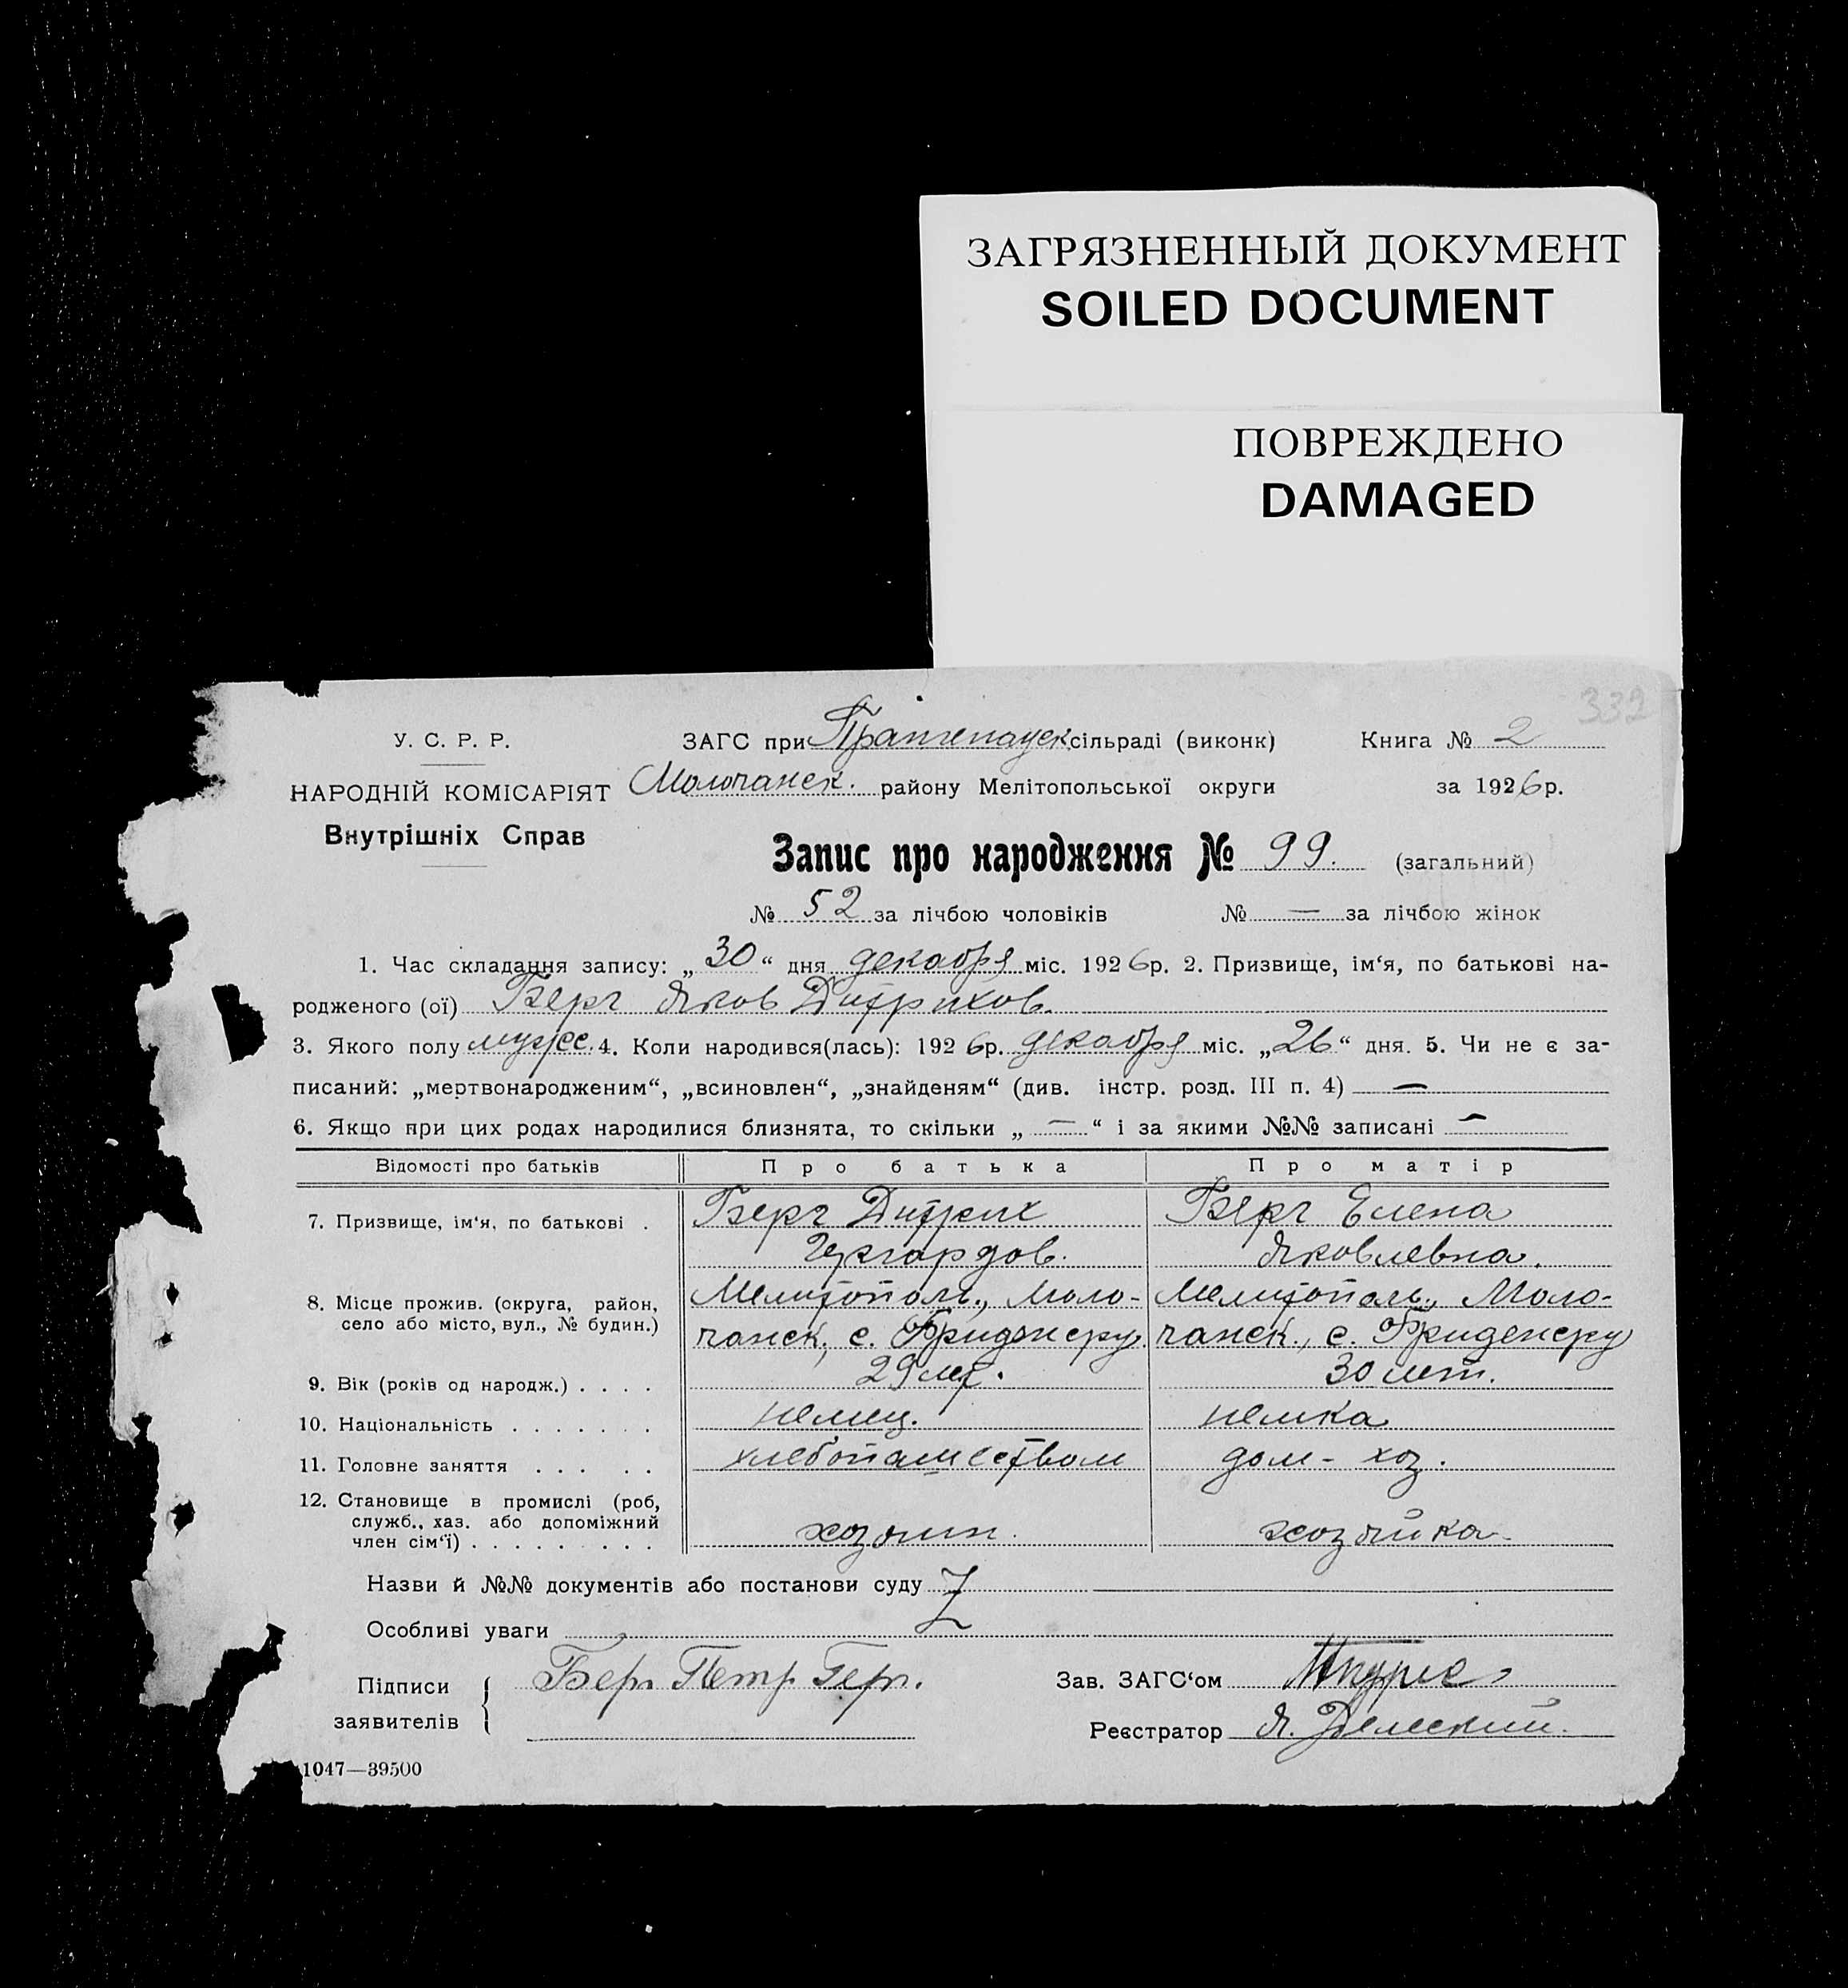 ЗАГРЯЗНЕННЫЙ ДОКУМЕНТ
SOILED DOCUMENT
ПОВРЕЖДЕНО
DAMAGED
332
У. С. Р. Р. ЗАГС при сільраді (виконк) Книга № 2
НАРОДНІЙ КОМІСАРІЯТ Молочанск. району Мелітопольської округи за 1926р.
Внутрішніх Справ
Запис про народження № 99. (загальний)
№ 52 за лічбою чоловіків № — за лічбою жінок
1. Час складання запису: „30“ дня декабря міс. 1926р. 2. Призвище, ім‘я, по батькові на-
родженого (ої) Берг Яков Дитрихов.
3. Якого полу мужс. 4. Коли народився(лась): 1926р. декабря міс. „26“ дня. 5. Чи не є за-
писаний: „мертвонародженим“, „всиновлен“, „знайденям“ (див. інстр. розд. III п. 4) —
6. Якщо при цих родах народилися близнята, то скільки „ — “ і за якими №№ записані —
Відомості про батьків Про батька Про матір
7. Призвище, ім‘я, по батькові . Берг Дитрих Берг Елена
Яковлевна.
8. Місце прожив. (округа, район, Мелитополь., Моло- Мелитополь., Моло-
село або місто, вул., № будин.) чанск., с. чанск., с.
9. Вік (років од народж.) . . . . 29 лет. 30 лет.
10. Національність . . . . . . . немец. немка
11. Головне заняття . . . . . хлебопашеством дом-хоз.
12. Становище в промислі (роб,
служб., хаз. або допоміжний
член сім‘ї) . . . . . . . . . хозяин. хозяйка
Назви й №№ документів або постанови суду Z
Особливі уваги
Підписи Берг Петр Гер. Зав. ЗАГС‘ом
заявителів Реєстратор Я.
1047—39500